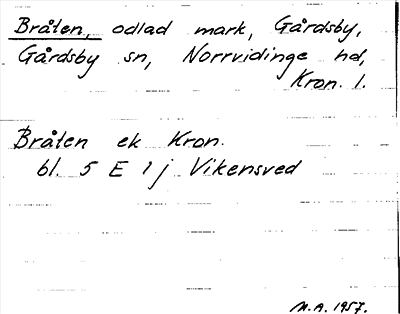 Bråten, odlad mark, Gårdsby,
Gårdsby sn, Norrvidinge hd,
Kron. l.
Bråten ek Kron.
bl. 5 E 1 j Vikensved
M.A. 1957.